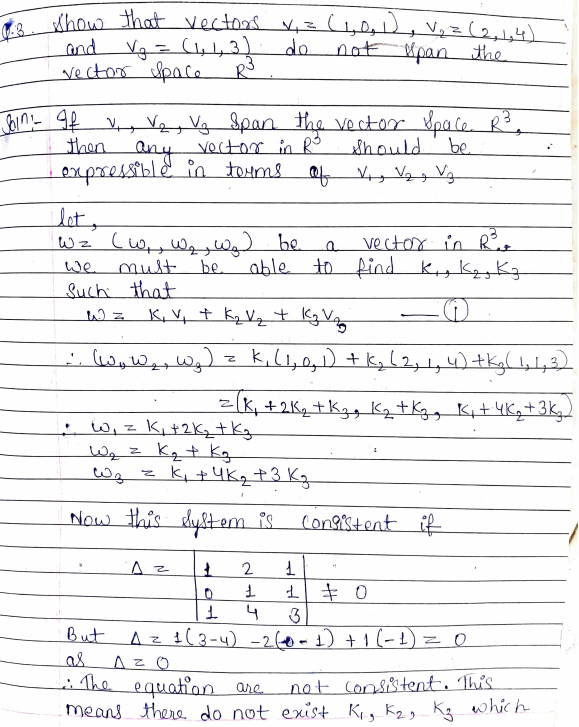 Q.3. Show that vectors v₁ = (1,0,1), v₂ = (2,1,4)
and v₃ = (1,1,3) do not span the
vector space R³.
Soln:- If v₁, v₂, v₃ span the vector space R³,
then any vector in R³ should be
expressible in terms of v₁, v₂, v₃
let,
w = (w₁, w₂, w₃) be a vector in R³.
we must be able to find K₁, K₂, K₃
such that
w = K₁V₁ + K₂V₂ + K₃V₃ — (i)
∴ (w₁, w₂, w₃) = K₁(1,0,1) + K₂(2,1,4) + K₃(1,1,3)
= (K₁ + 2K₂ + K₃, K₂ + K₃, K₁ + 4K₂ + 3K₃)
∴ w₁ = K₁ + 2K₂ + K₃
w₂ = K₂ + K₃
w₃ = K₁ + 4K₂ + 3K₃
Now this system is consistent if
Δ = | 1 2 1 |
| 0 1 1 | ≠ 0
| 1 4 3 |
But Δ = 1(3-4) -2(0-1) + 1(-1) = 0
as Δ = 0
∴ The equation are not consistent. This
means there do not exist K₁, K₂, K₃ which